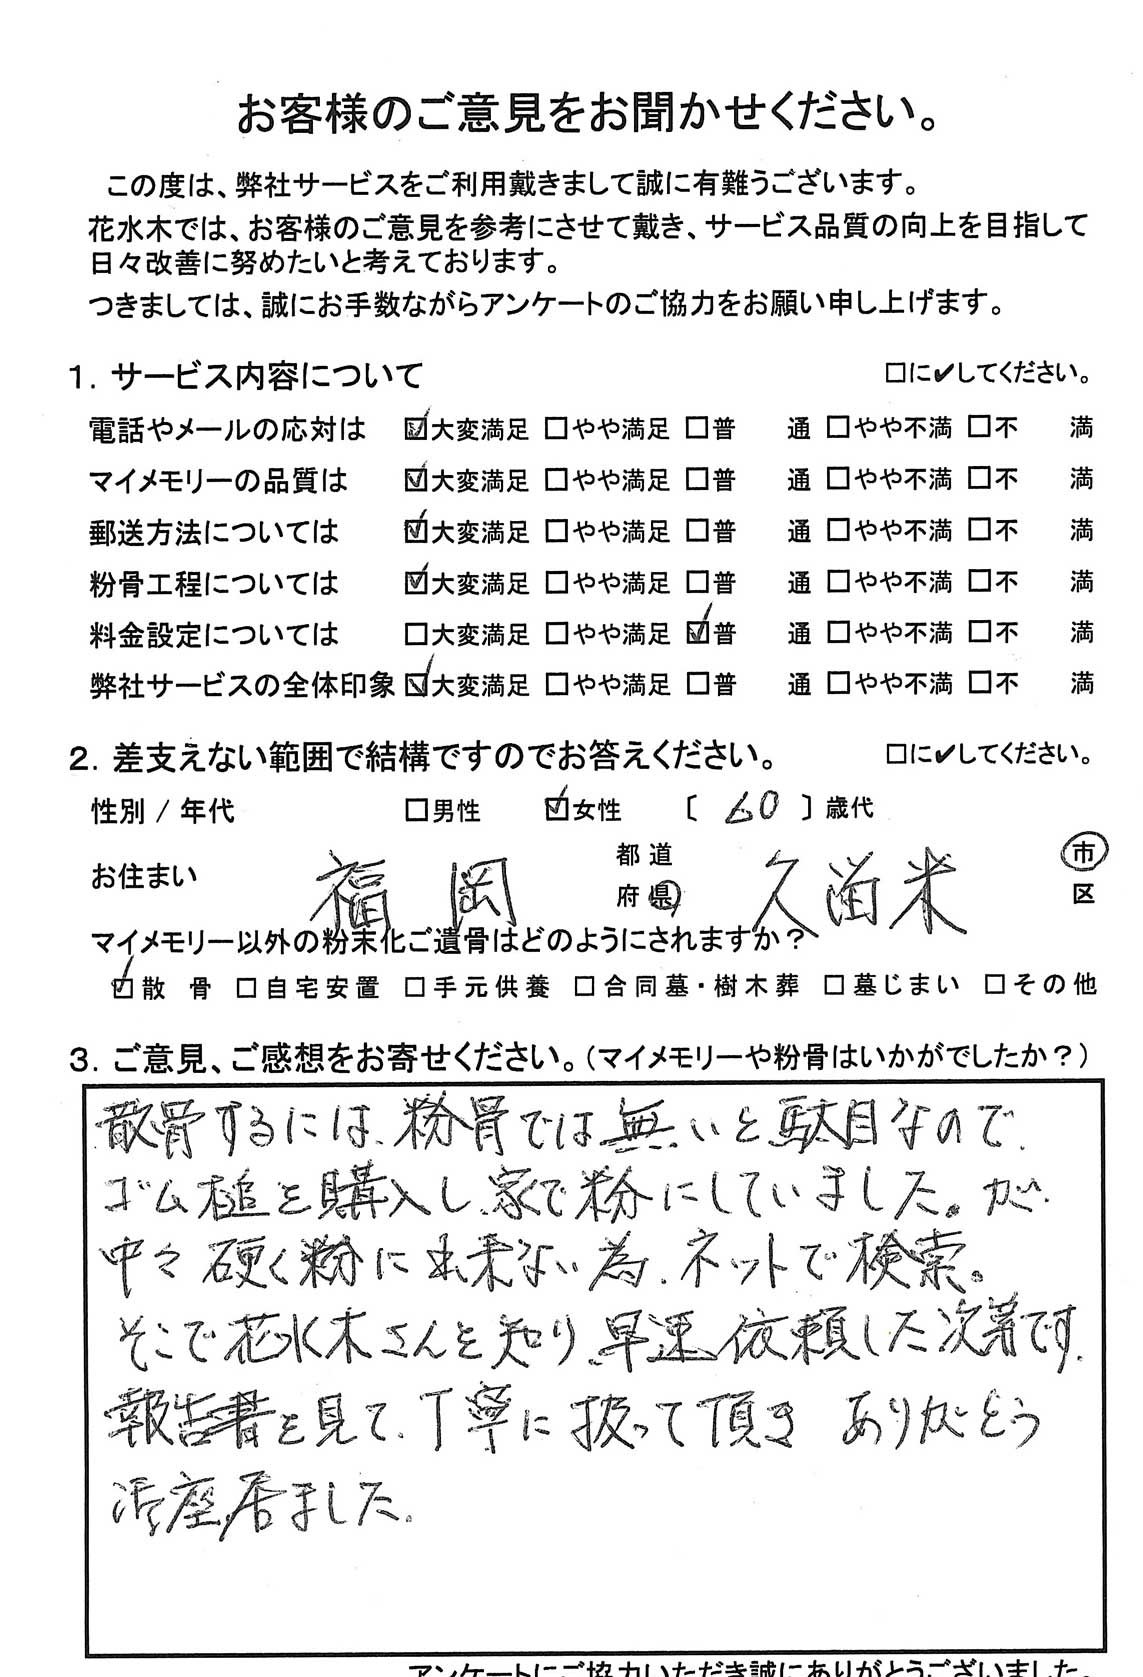 お客様のご意見をお聞かせください。
この度は、弊社サービスをご利用戴きまして誠に有難うございます。
花水木では、お客様のご意見を参考にさせて戴き、サービス品質の向上を目指して
日々改善に努めたいと考えております。
つきましては、誠にお手数ながらアンケートのご協力をお願い申し上げます。
1. サービス内容について □に✔してください。
電話やメールの応対は ☑大変満足 □やや満足 □普 通 □やや不満 □不 満
マイメモリーの品質は ☑大変満足 □やや満足 □普 通 □やや不満 □不 満
郵送方法については ☑大変満足 □やや満足 □普 通 □やや不満 □不 満
粉骨工程については ☑大変満足 □やや満足 □普 通 □やや不満 □不 満
料金設定については □大変満足 □やや満足 ☑普 通 □やや不満 □不 満
弊社サービスの全体印象 ☑大変満足 □やや満足 □普 通 □やや不満 □不 満
2. 差支えない範囲で結構ですのでお答えください。 □に✔してください。
性別 / 年代 □男性 ☑女性 〔 60 〕歳代
お住まい 福岡 都道府県 久留米 市区
マイメモリー以外の粉末化ご遺骨はどのようにされますか？
☑散骨 □自宅安置 □手元供養 □合同墓・樹木葬 □墓じまい □その他
3. ご意見、ご感想をお寄せください。（マイメモリーや粉骨はいかがでしたか？）
散骨するには、粉骨では無いと駄目なので、
ゴム槌を購入し、家で粉にしていました。が、
中々硬く粉に出来ない為、ネットで検索。
そこで花水木さんを知り、早速依頼した次第です。
報告書を見て、丁寧に扱って頂き ありがとう
御座居ました。
アンケートにご協力いただき誠にありがとうございました。